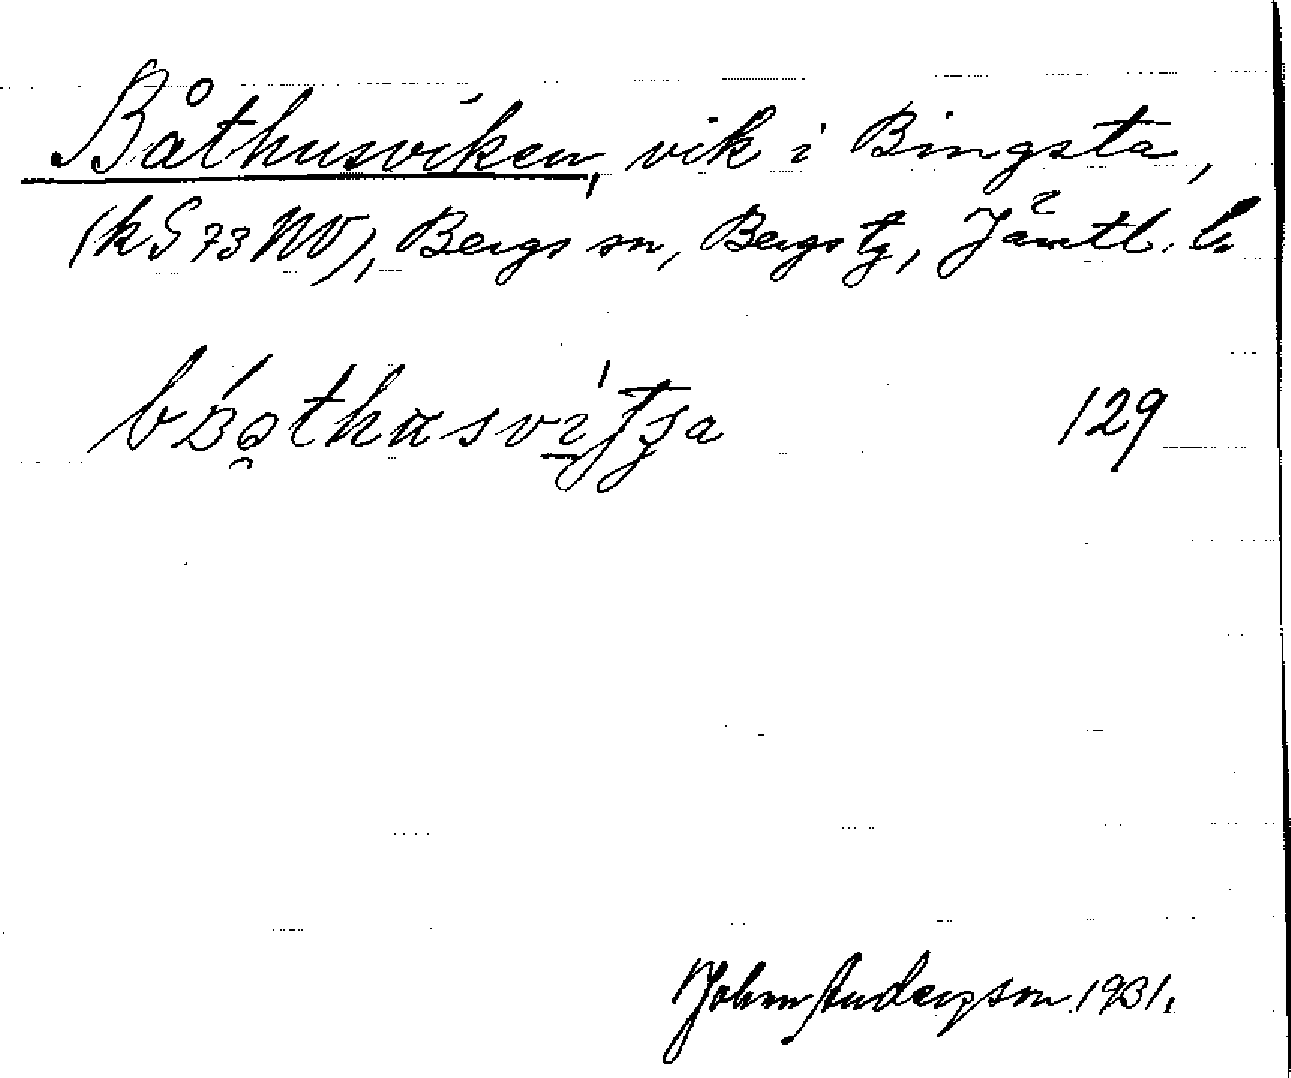 Båthusviken, vik i Bingsta,
(k S 73 NV), Bergs sn, Bergs tg, Jämtl. l.
129
John Andersson 1931.